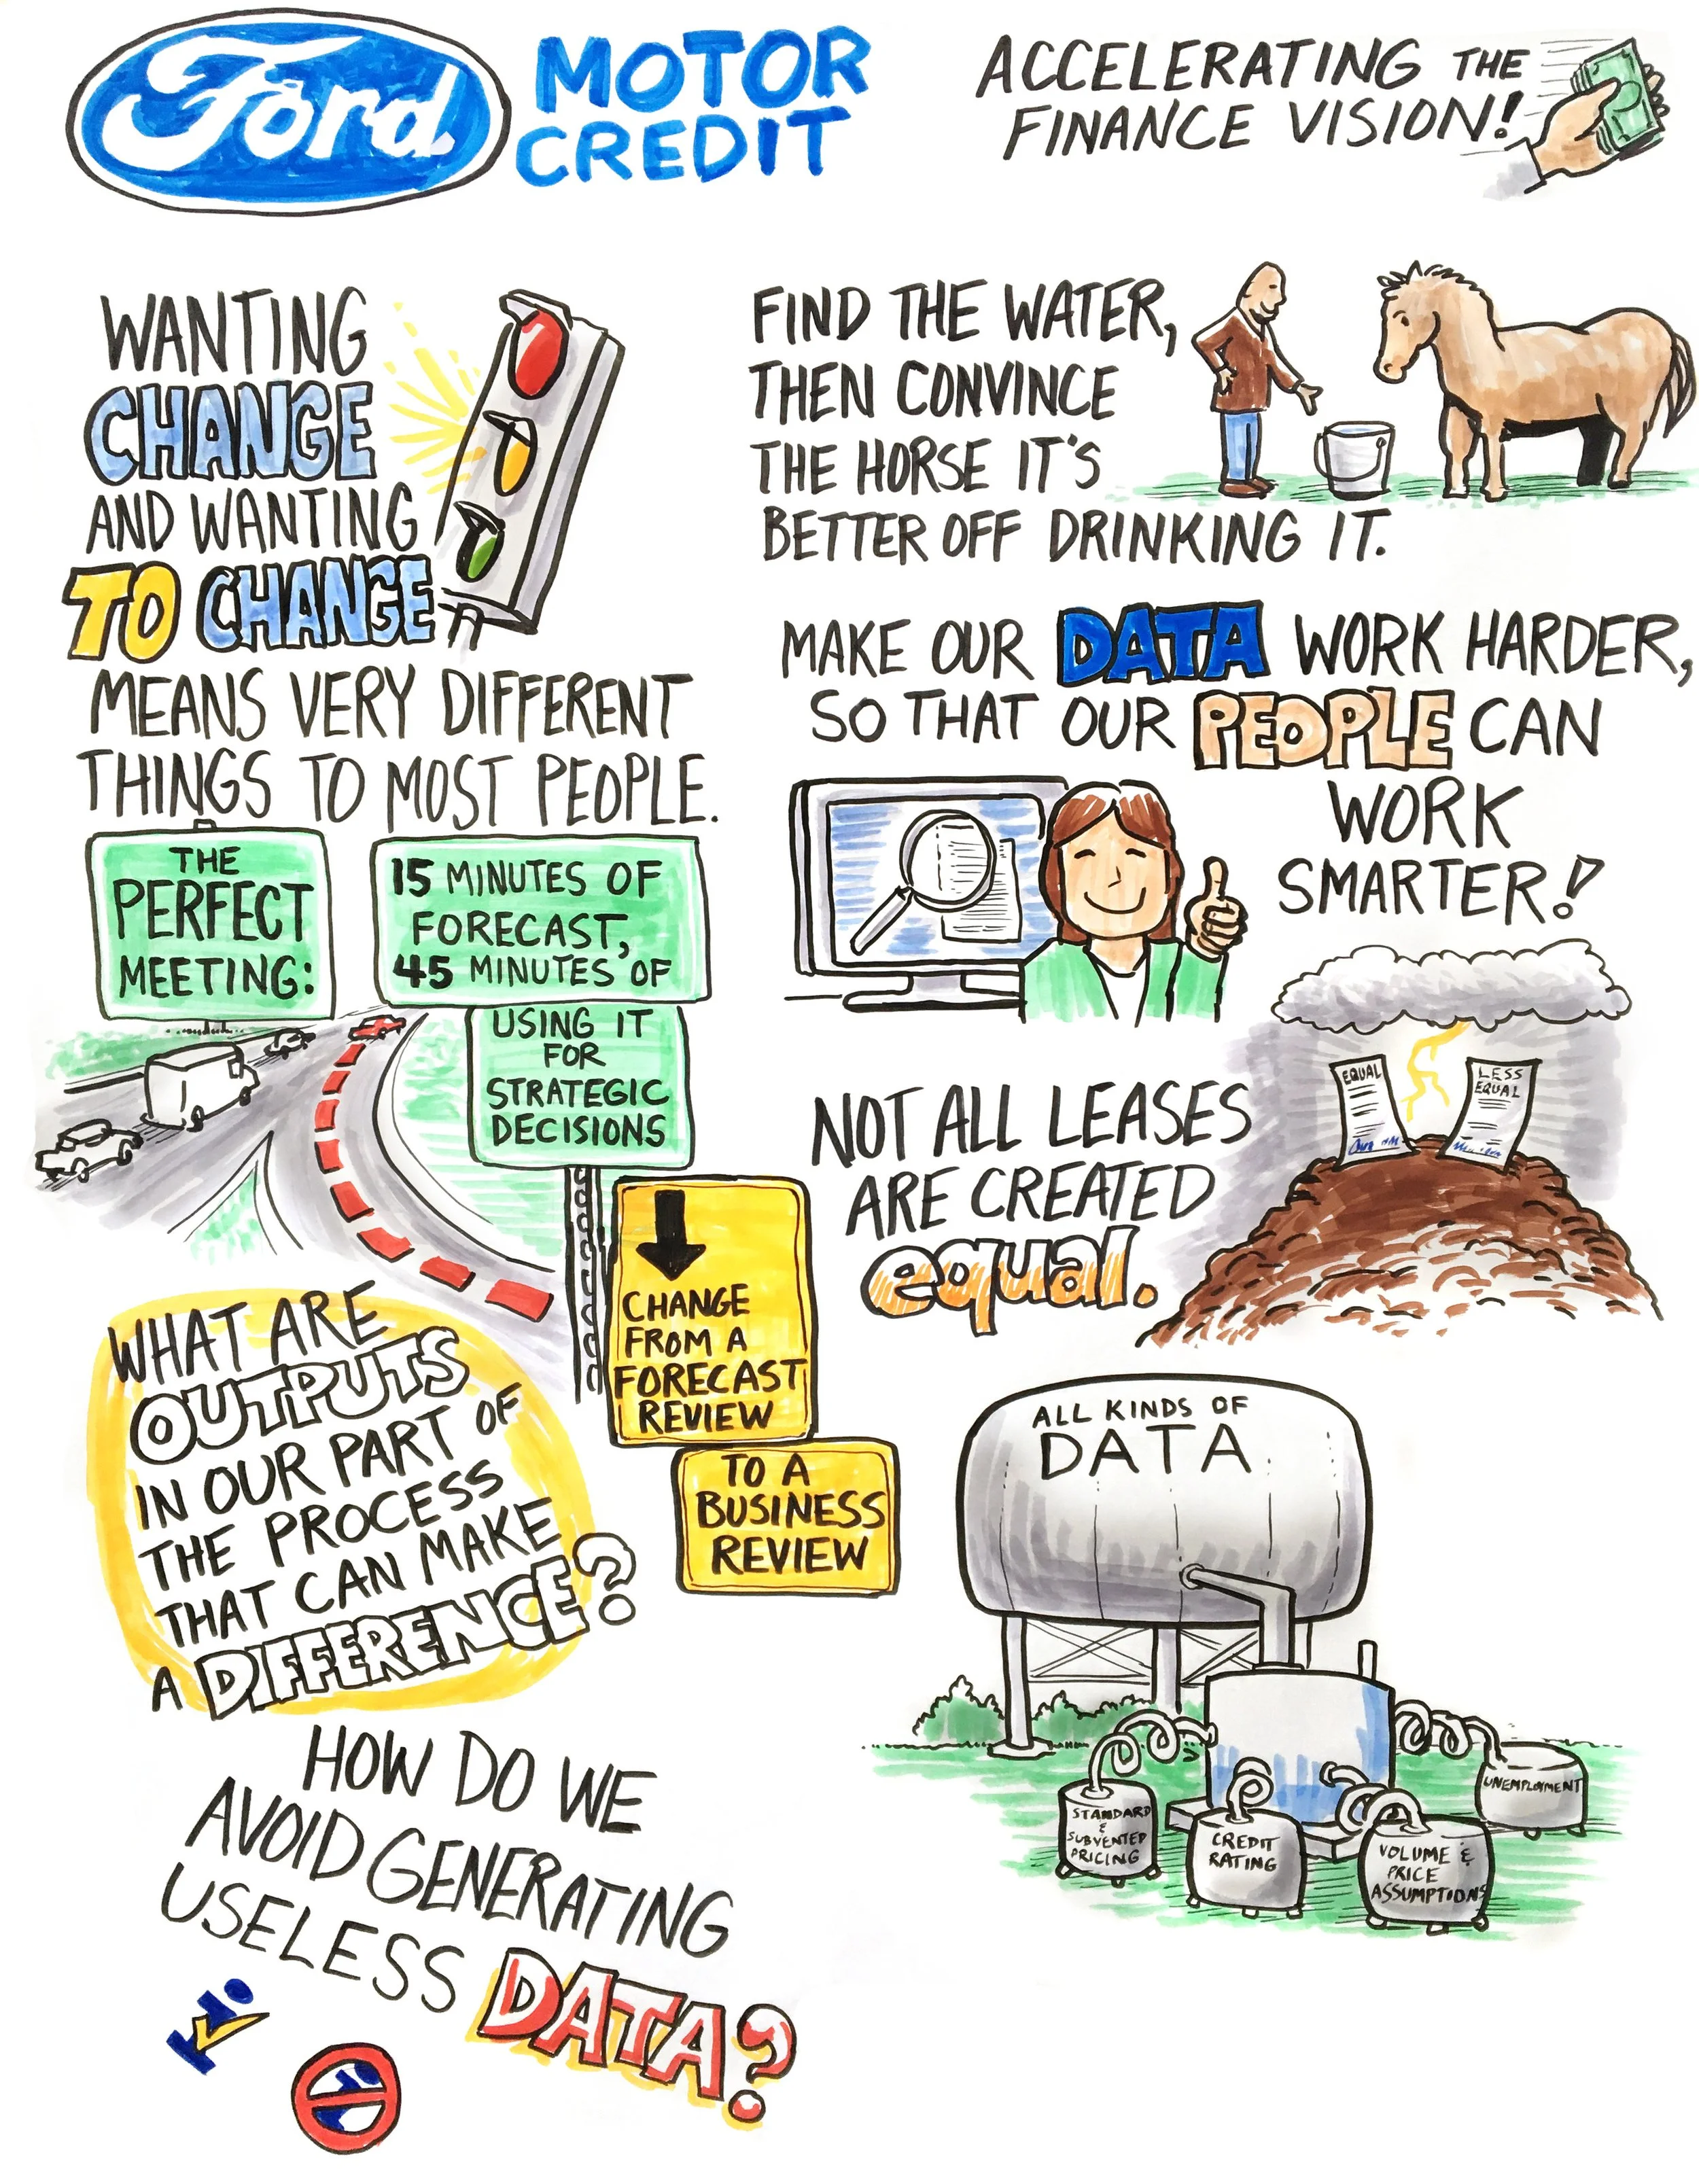 Ford
MOTOR
CREDIT
ACCELERATING THE
FINANCE VISION!
WANTING
CHANGE
AND WANTING
TO CHANGE
MEANS VERY DIFFERENT
THINGS TO MOST PEOPLE.
THE
PERFECT
MEETING:
15 MINUTES OF
FORECAST,
45 MINUTES OF
USING IT
FOR
STRATEGIC
DECISIONS
CHANGE
FROM A
FORECAST
REVIEW
TO A
BUSINESS
REVIEW
WHAT ARE
OUTPUTS
IN OUR PART OF
THE PROCESS
THAT CAN MAKE
A DIFFERENCE?
HOW DO WE
AVOID GENERATING
USELESS DATA?
FIND THE WATER,
THEN CONVINCE
THE HORSE IT'S
BETTER OFF DRINKING IT.
MAKE OUR DATA WORK HARDER,
SO THAT OUR PEOPLE CAN
WORK
SMARTER!
NOT ALL LEASES
ARE CREATED
equal.
EQUAL
LESS
EQUAL
ALL KINDS OF
DATA
STANDARD
&
SUBVENTED
PRICING
CREDIT
RATING
VOLUME &
PRICE
ASSUMPTIONS
UNEMPLOYMENT